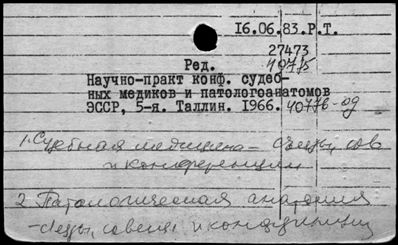 16.06.83.Р.Т.
27473
Ред. 40775
Научно-практ конф. судеб-
ных медиков и патологоанатомов
ЭССР, 5-я. Таллин. 1966. 40776-од
1. Судебная медицина - съезды, сов
и конференции
2. Патологическая анатомия
- съезды, совещ. и конференции